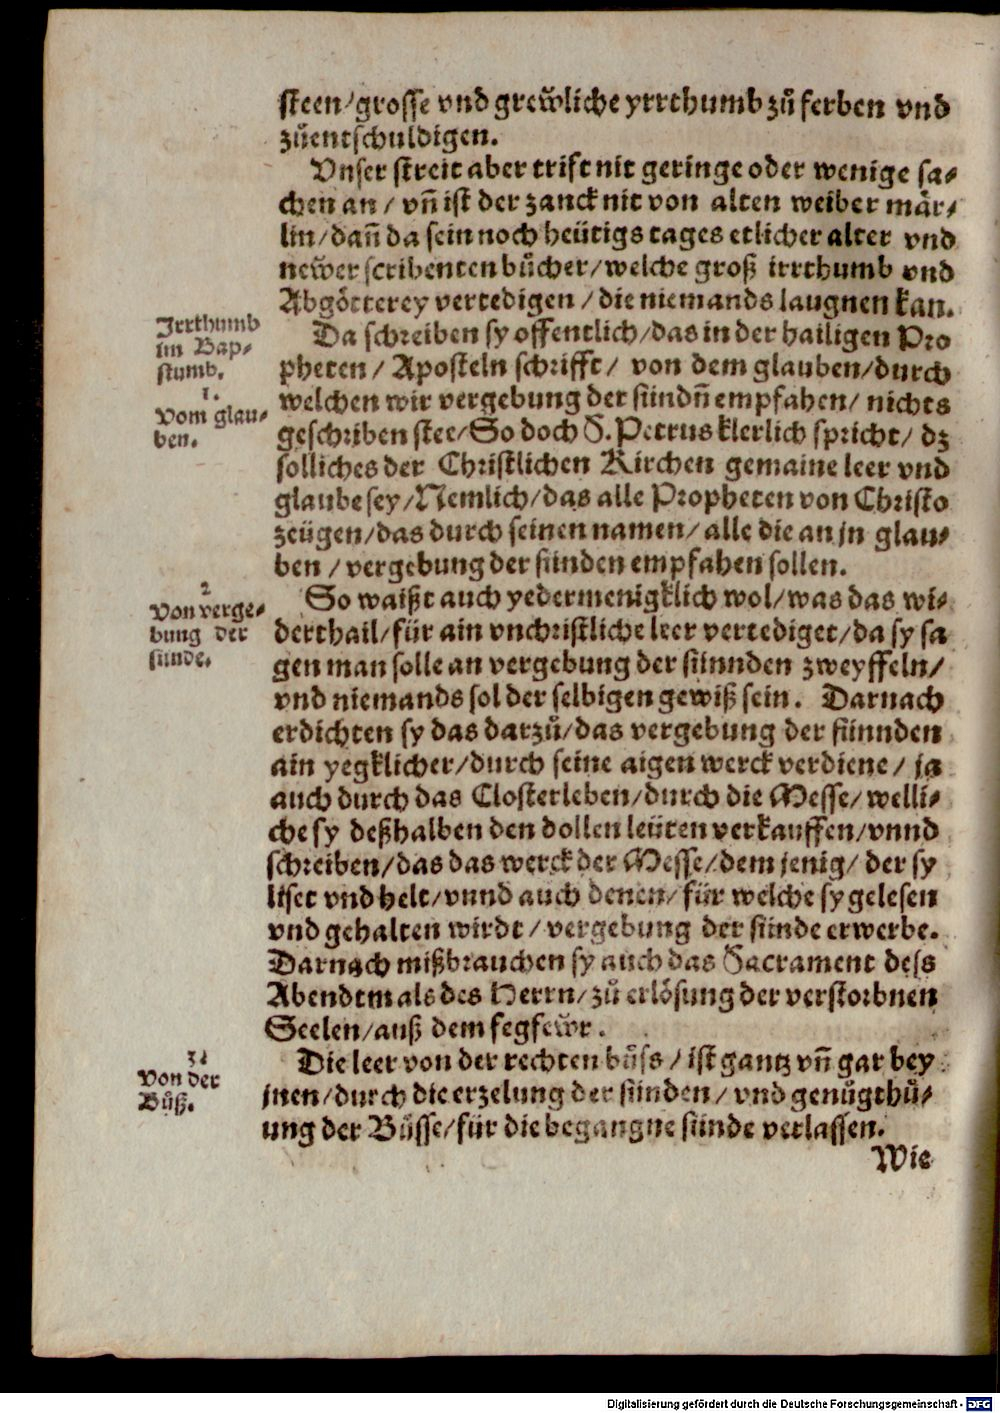 steen/grosse vnd grewͤliche yrrthumb zuͦ ferben vnd
zuͦentschuldigen.
Vnser streit aber trift nit geringe oder wenige sa⸗
chen an/ vñ ist der zanck nit von alten weiber mär⸗
lin/dañ da sein noch heütigs tages etlicher alter vnd
newͤer scribenten buͤcher/welche groß irrthumb vnd
Abgoͤtterey vertedigen/die niemands laugnen kan.
Irrthumb
im Bap⸗
stumb.
Da schreiben sy offentlich/das in der hailigen Pro
pheten/ Aposteln schrifft/ von dem glauben/durch
1.
Vom glau⸗
ben.
welchen wir vergebung der sündñ empfahen/ nichts
geschriben stee/So doch S. Petrus klerlich spricht/ dz
solliches der Christlichen Kirchen gemaine leer vnd
glaube sey/Nemlich/das alle Propheten von Christo
zeügen/das durch seinen namen/alle die an jn glau⸗
ben/vergebung der sünden empfahen sollen.
2
Von verge⸗
bung der
sünde.
So waißt auch yedermenigklich wol/was das wi⸗
derthail/für ain vnchristliche leer vertediget/da sy sa
gen man solle an vergebung der sünnden zweyffeln/
vnd niemands sol der selbigen gewiß sein. Darnach
erdichten sy das darzuͦ/das vergebung der sünnden
ain yegklicher/durch seine aigen werck verdiene/ ja
auch durch das Closterleben/durch die Messe/welli⸗
che sy deßhalben den dollen leüten verkauffen/vnnd
schreiben/das das werck der Messe/dem jenig/ der sy
liset vnd helt/vnnd auch denen/für welche sy gelesen
vnd gehalten wirdt/vergebung der sünde erwerbe.
Darnach mißbrauchen sy auch das Sacrament dess
Abendtmals des Herrn/zuͦ erlösung der verstorbnen
Seelen/auß dem fegfewͤr.
3.
Von der
Buͦß.
Die leer von der rechten buͦss/ist gantz vñ gar bey
jnen/durch die erzelung der sünden/vnd genuͦgthuͦ⸗
ung der Buͦsse/für die begangne sünde verlassen.
Wie
Digitalisierung gefördert durch die Deutsche Forschungsgemeinschaft - DFG